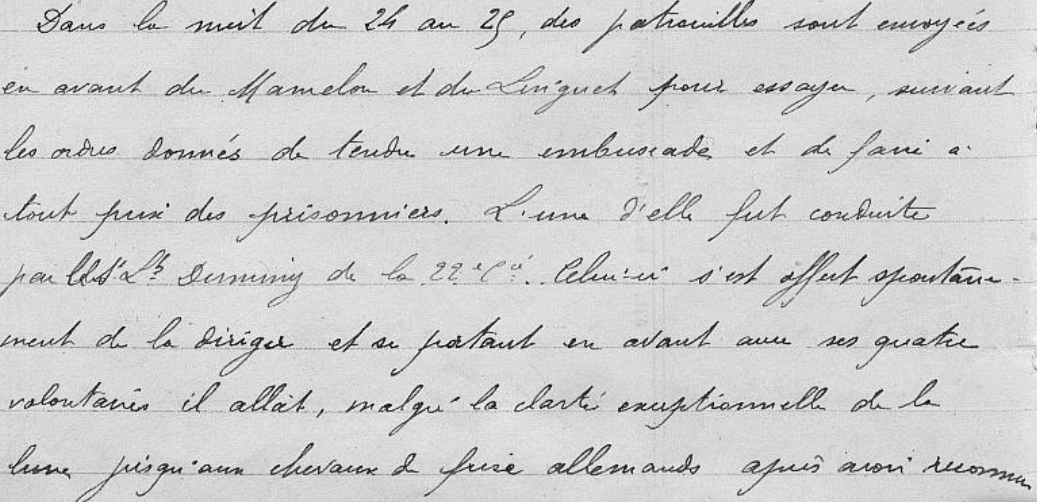 Dans la nuit du 24 au 25, des patrouilles sont envoyées
en avant du Mamelon et du Linguet pour essayer, suivant
les ordres donnés de tendre une embuscade et de faire à
tout prix des prisonniers. L'une d'elle fut conduite
par le S/Lt de la 22e Cie. Celui-ci s'est offert spontané-
ment de la diriger et se portant en avant avec ses quatre
volontaires il allait, malgré la clarté exceptionnelle de la
lune jusqu'aux chevaux de frise allemands après avoir reconnu